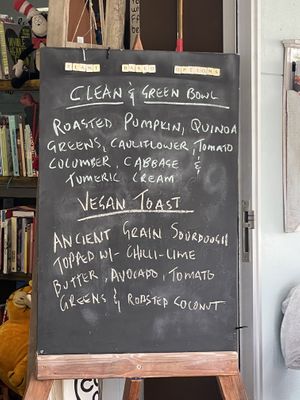 PLANT BASED OPTIONS
CLEAN & GREEN BOWL
ROASTED PUMPKIN, QUINOA
GREENS, CAULIFLOWER, TOMATO
CUCUMBER, CABBAGE &
TUMERIC CREAM
VEGAN TOAST
ANCIENT GRAIN SOURDOUGH
TOPPED W/- CHILLI-LIME
BUTTER, AVOCADO, TOMATO
GREENS & ROASTED COCONUT